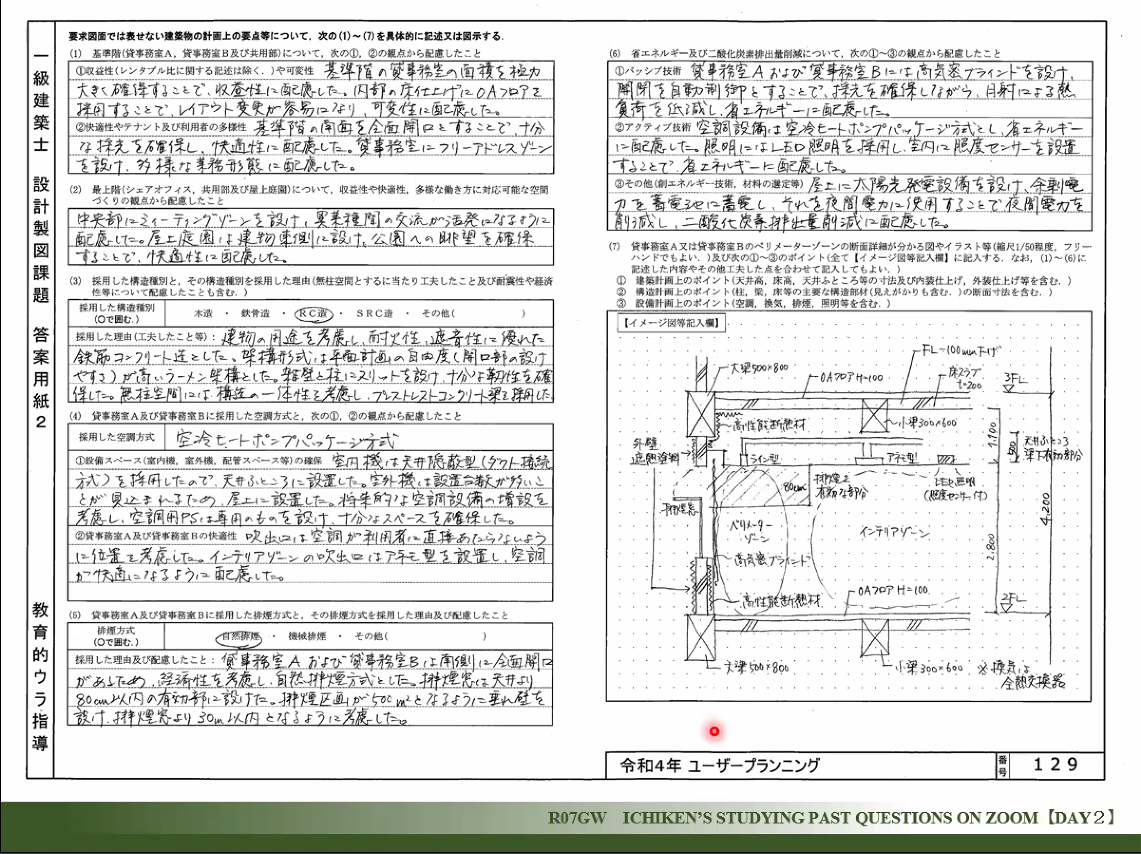 一級建築士 設計製図課題 答案用紙2
教育的ウラ指導
要求図面では表せない建築物の計画上の要点等について、次の(1)～(7)を具体的に記述又は図示する.
(1) 基準階(貸事務室A，貸事務室B及び共用部)について，次の①，②の観点から配慮したこと
①収益性(レンタブル比に関する記述は除く．)や可変性 基準階の貸事務室の面積を極力
大きく確保することで、収益性に配慮した。内部の床仕上げにOAフロアを
採用することで、レイアウト変更が容易になり、可変性に配慮した。
②快適性やテナント及び利用者の多様性 基準階の南面を全面開口とすることで、十分
な採光を確保し、快適性に配慮した。貸事務室にフリーアドレスゾーン
を設け、多様な業務形態に配慮した。
(2) 最上階(シェアオフィス，共用部及び屋上庭園)について，収益性や快適性，多様な働き方に対応可能な空間
づくりの観点から配慮したこと
中央部にミーティングゾーンを設け、異業種間の交流が活発になるように
配慮した。屋上庭園は建物東側に設け、公園への眺望を確保
することで、快適性に配慮した。
(3) 採用した構造種別と，その構造種別を採用した理由(無柱空間とするに当たり工夫したこと及び耐震性や経済
性等について配慮したことも含む．)
採用した構造種別
(○で囲む．)
木造 ・ 鉄骨造 ・ RC造 ・ SRC造 ・ その他( )
採用した理由(工夫したこと等)： 建物の用途を考慮し、耐火性、遮音性に優れた
鉄筋コンクリート造とした。架構形式は平面計画の自由度(開口部の設け
やすさ)が高いラーメン架構とした。雑壁と柱にスリットを設け、十分な靭性を確
保した。無柱空間には構造の一体性を考慮し、プレストレストコンクリート梁を採用した
(4) 貸事務室A及び貸事務室Bに採用した空調方式と，次の①，②の観点から配慮したこと
採用した空調方式 空冷ヒートポンプパッケージ方式
①設備スペース(室内機，室外機，配管スペース等)の確保 室内機は天井隠蔽型(ダクト接続
方式)を採用したので、天井ふところに設置した。室外機は設置台数が多いこ
とが見込まれるため、屋上に設置した。将来的な空調設備の増設を
考慮し、空調用PSは専用のものを設け、十分なスペースを確保した。
②貸事務室A及び貸事務室Bの快適性 吹出口は空調が利用者に直接あたらないよう
に位置を考慮した。インテリアゾーンの吹出口はアネモ型を設置し、空調
が快適になるように配慮した。
(5) 貸事務室A及び貸事務室Bに採用した排煙方式と，その排煙方式を採用した理由及び配慮したこと
排煙方式
(○で囲む．)
自然排煙 ・ 機械排煙 ・ その他( )
採用した理由及び配慮したこと： 貸事務室Aおよび貸事務室Bは南側に全面開口
があるため、経済性を考慮し、自然排煙方式とした。排煙窓は天井より
80cm以内の有効部に設けた。排煙区画が500㎡となるように垂れ壁を
設け、排煙窓より30m以内となるように考慮した。
(6) 省エネルギー及び二酸化炭素排出量削減について，次の①～③の観点から配慮したこと
①パッシブ技術 貸事務室Aおよび貸事務室Bには高気密ブラインドを設け、
開閉を自動制御とすることで、採光を確保しながら、日射による熱
負荷を低減し、省エネルギーに配慮した。
②アクティブ技術 空調設備は空冷ヒートポンプパッケージ方式とし、省エネルギー
に配慮した。照明にはLED照明を採用し、室内に照度センサーを設置
することで、省エネルギーに配慮した。
③その他(創エネルギー技術，材料の選定等) 屋上に太陽光発電設備を設け、余剰電
力を蓄電池に蓄電し、それを夜間電力に使用することで夜間電力を
削減し、二酸化炭素排出量削減に配慮した。
(7) 貸事務室A又は貸事務室Bのペリメーターゾーンの断面詳細が分かる図やイラスト等(縮尺1/50程度，フリー
ハンドでもよい．)及び次の①～③のポイント(全て【イメージ図等記入欄】に記入する．なお，(1)～(6)に
記述した内容やその他工夫した点を合わせて記入してもよい．)
① 建築計画上のポイント(天井高，床高，天井ふところ等の寸法及び内装仕上げ，外装仕上げ等を含む．)
② 構造計画上のポイント(柱，梁，床等の主要な構造部材(見えがかりも含む．)の断面寸法を含む．)
③ 設備計画上のポイント(空調，換気，排煙，照明等を含む．)
【イメージ図等記入欄】
FL-100mm下げ
大梁500×800
OAフロアH=100
床スラブ
t=200
3FL
高性能断熱材
小梁300×600
外壁
遮熱塗料
ライン型
アネモ型
1,400
500
天井ふところ
梁下有効部分
80cm
排煙上
有効な部分
LED照明
(照度センサー付)
4,200
排煙窓
ペリメーター
ゾーン
インテリアゾーン
2,800
高気密ブラインド
高性能断熱材
OAフロアH=100
2FL
大梁500×800
小梁300×600
※換気は
全熱交換器
令和4年 ユーザープランニング
番号
129
R07GW ICHIKEN'S STUDYING PAST QUESTIONS ON ZOOM【DAY2】